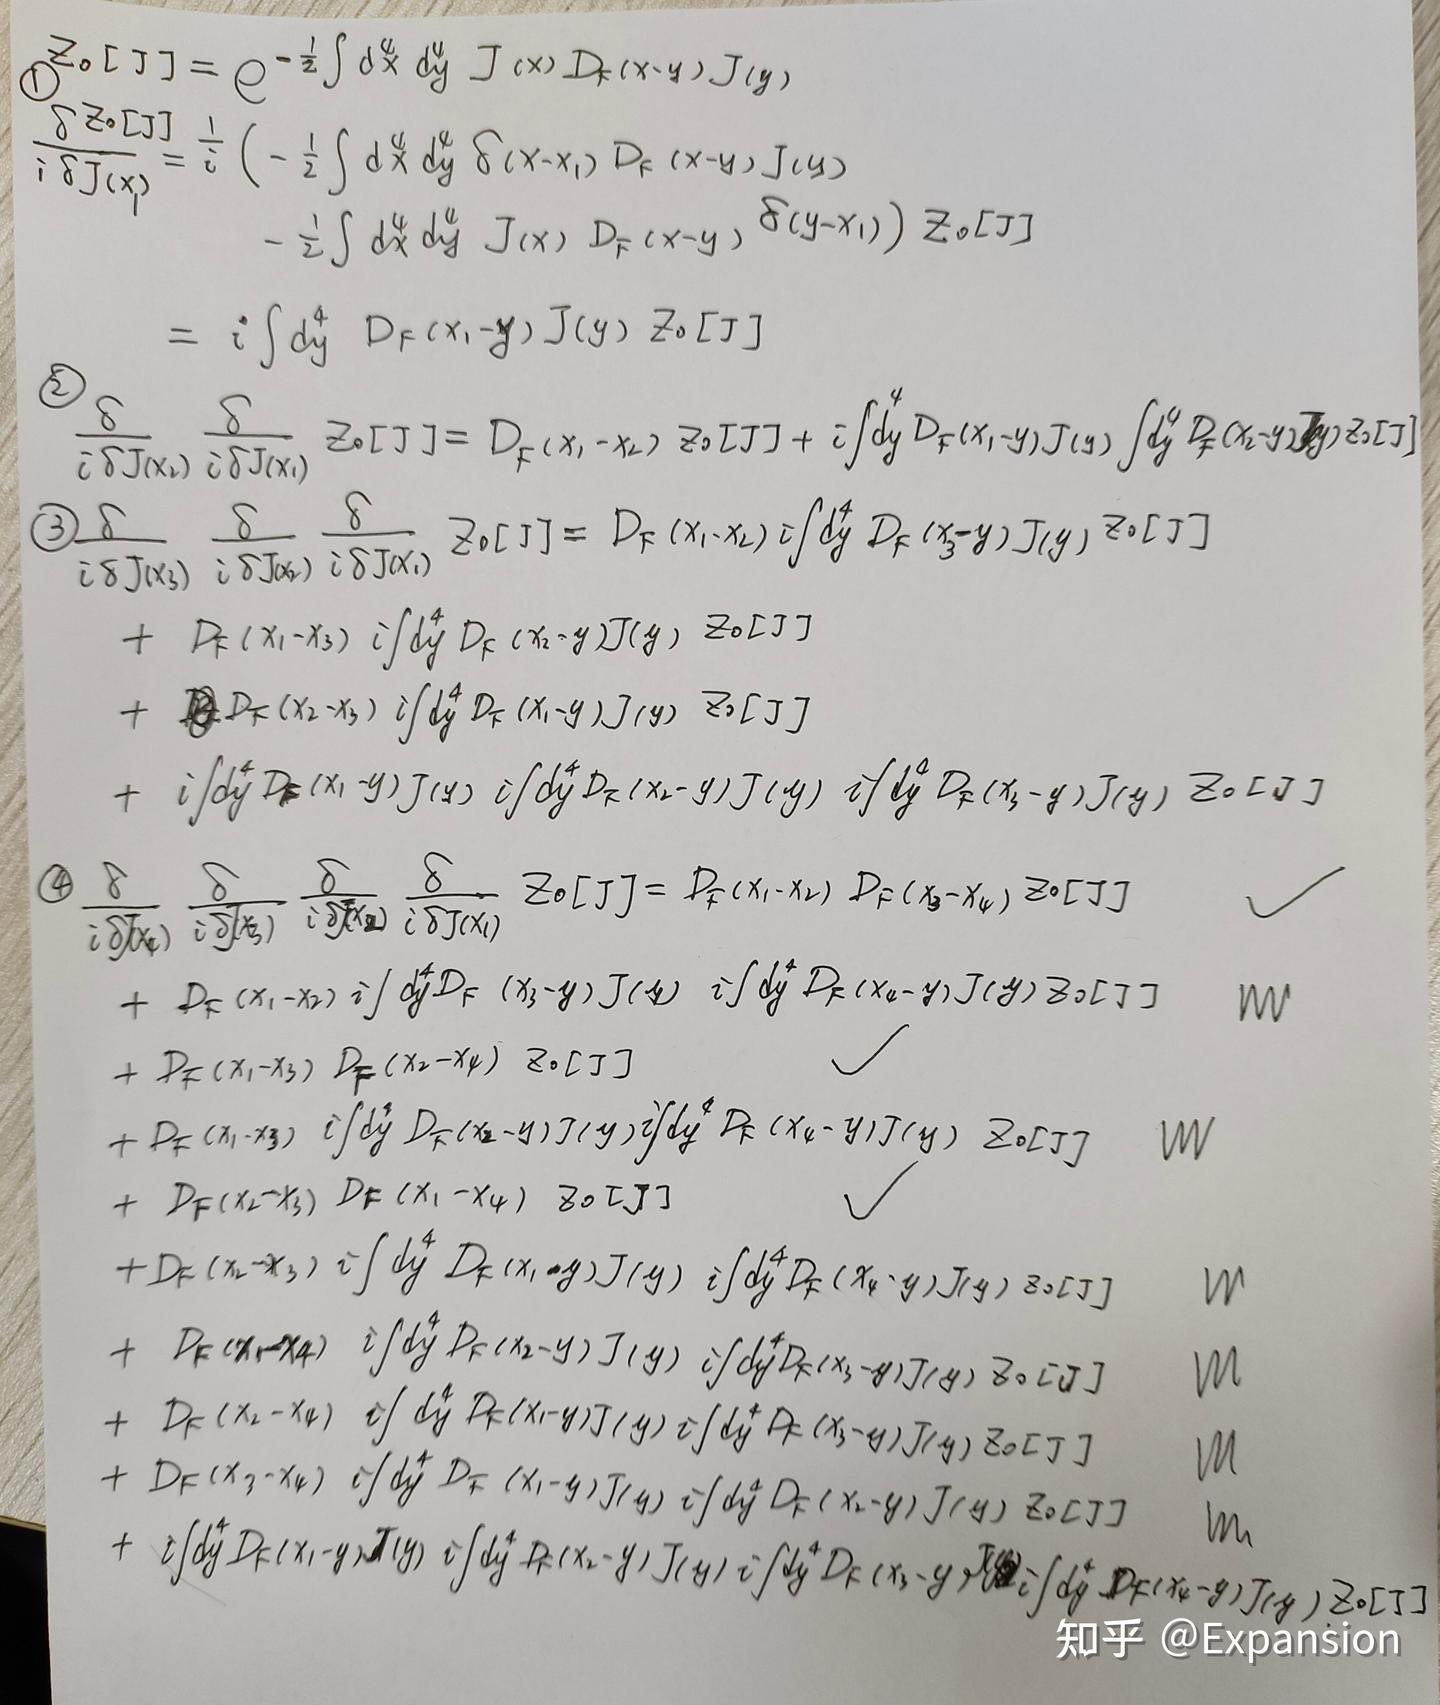 ① Z₀[J] = e^{-½∫d⁴x d⁴y J(x) D_F(x-y) J(y)}
δZ₀[J]/iδJ(x₁) = 1/i (-½∫d⁴x d⁴y δ(x-x₁) D_F(x-y) J(y)
-½∫d⁴x d⁴y J(x) D_F(x-y) δ(y-x₁)) Z₀[J]
= i∫d⁴y D_F(x₁-y) J(y) Z₀[J]
② δ/iδJ(x₂) δ/iδJ(x₁) Z₀[J] = D_F(x₁-x₂) Z₀[J] + i∫d⁴y D_F(x₁-y)J(y) ∫d⁴y D_F(x₂-y)J(y) Z₀[J]
③ δ/iδJ(x₃) δ/iδJ(x₂) δ/iδJ(x₁) Z₀[J] = D_F(x₁-x₂) i∫d⁴y D_F(x₃-y)J(y) Z₀[J]
+ D_F(x₁-x₃) i∫d⁴y D_F(x₂-y)J(y) Z₀[J]
+ D_F(x₂-x₃) i∫d⁴y D_F(x₁-y)J(y) Z₀[J]
+ i∫d⁴y D_F(x₁-y)J(y) i∫d⁴y D_F(x₂-y)J(y) i∫d⁴y D_F(x₃-y)J(y) Z₀[J]
④ δ/iδJ(x₄) δ/iδJ(x₃) δ/iδJ(x₂) δ/iδJ(x₁) Z₀[J] = D_F(x₁-x₂) D_F(x₃-x₄) Z₀[J] ✓
+ D_F(x₁-x₂) i∫d⁴y D_F(x₃-y)J(y) i∫d⁴y D_F(x₄-y)J(y) Z₀[J]
+ D_F(x₁-x₃) D_F(x₂-x₄) Z₀[J] ✓
+ D_F(x₁-x₃) i∫d⁴y D_F(x₂-y)J(y) i∫d⁴y D_F(x₄-y)J(y) Z₀[J]
+ D_F(x₂-x₃) D_F(x₁-x₄) Z₀[J] ✓
+ D_F(x₂-x₃) i∫d⁴y D_F(x₁-y)J(y) i∫d⁴y D_F(x₄-y)J(y) Z₀[J]
+ D_F(x₁-x₄) i∫d⁴y D_F(x₂-y)J(y) i∫d⁴y D_F(x₃-y)J(y) Z₀[J]
+ D_F(x₂-x₄) i∫d⁴y D_F(x₁-y)J(y) i∫d⁴y D_F(x₃-y)J(y) Z₀[J]
+ D_F(x₃-x₄) i∫d⁴y D_F(x₁-y)J(y) i∫d⁴y D_F(x₂-y)J(y) Z₀[J]
+ i∫d⁴y D_F(x₁-y)J(y) i∫d⁴y D_F(x₂-y)J(y) i∫d⁴y D_F(x₃-y)J(y) i∫d⁴y D_F(x₄-y)J(y) Z₀[J]
知乎 @Expansion